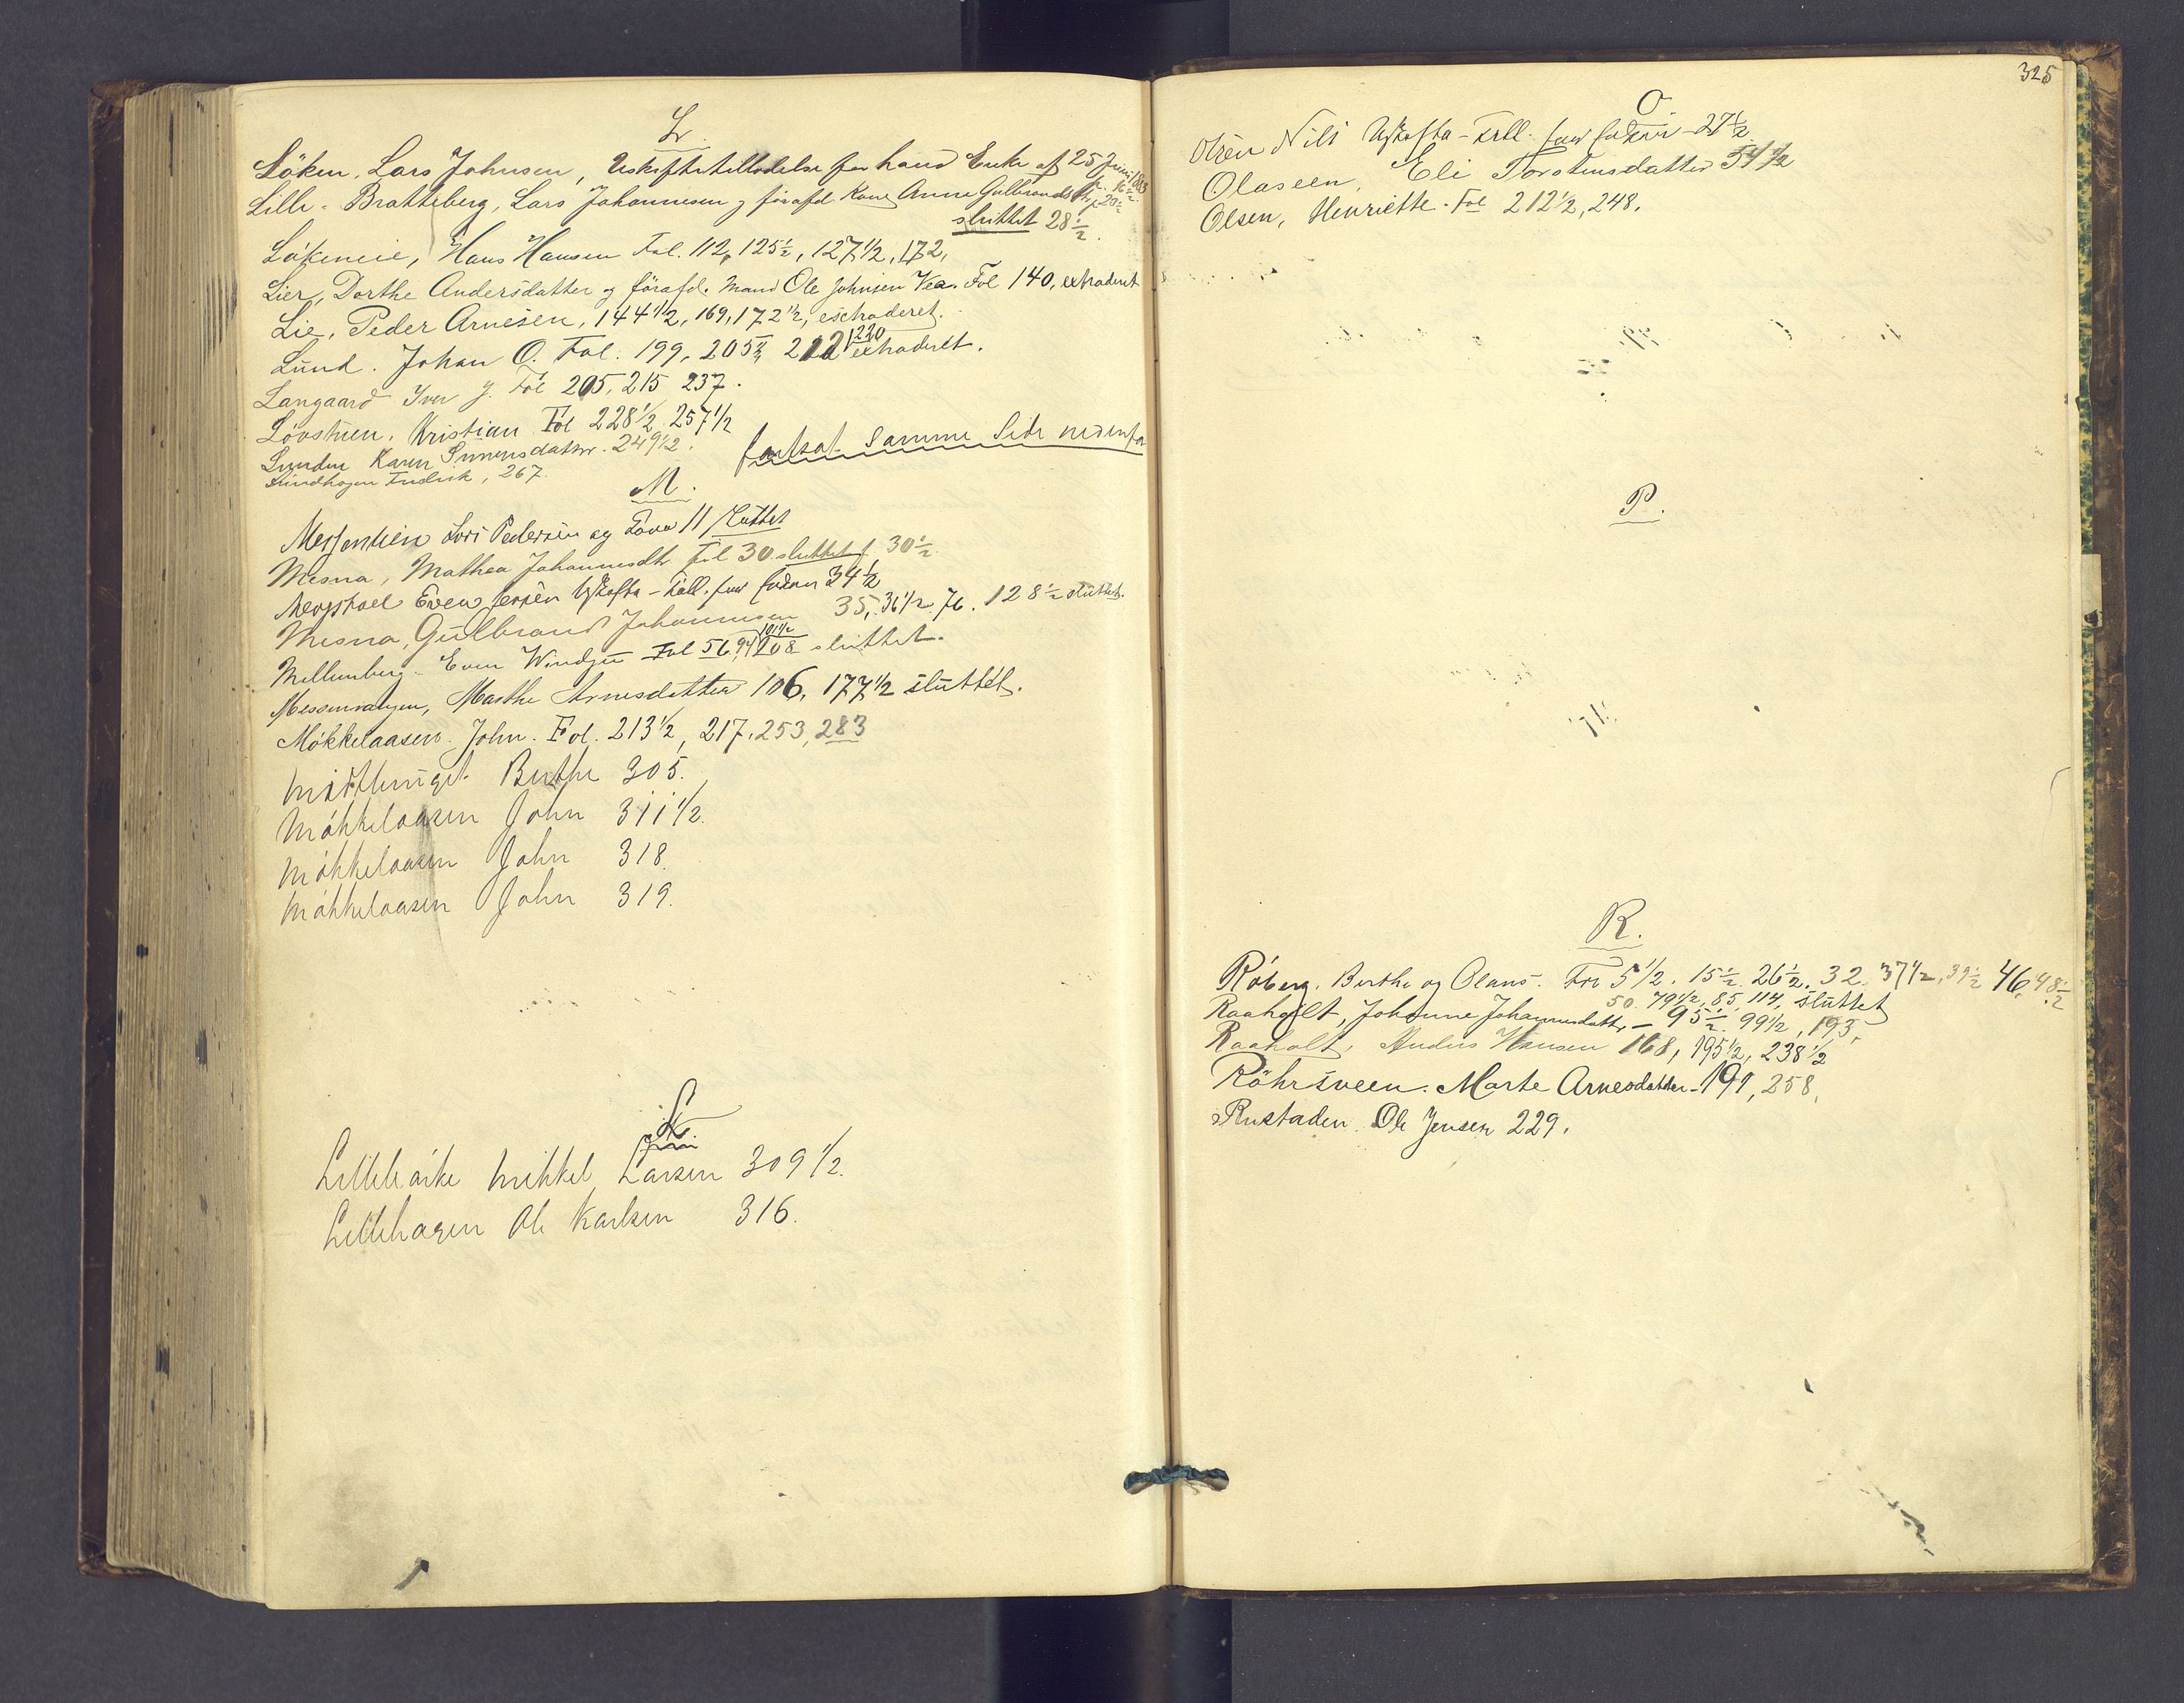 L.
Löken, Lars Johnsen, Uskiftetilladelse for hans Enke af 25 Juni 1883
Lille-Bratteberg, Lars Johannesen og förafd Kone Anne Gulbrandsd
sluttet 28 1/2.
Lökeneie, Hans Hansen Fol. 112, 125 1/2, 127 1/2, 172,
Lier, Dorthe Andersdatter og förafd. Mand Ole Johnsen Vea. Fol 140, extraderet
Lie, Peder Arnesen, 144 1/2, 169, 172 1/2, extraderet.
Lund. Johan O. Fol. 199, 205 212 220 extraderet.
Langaard Iver J. Fol 205, 215 237.
Lövstuen, Kristian Fol 228 1/2 257 1/2
Lunden Karen Simensdatter. 249 1/2.
fortsat samme Side nedenfor
Lundhagen Fredrik, 267.
M.
Lars Pedersen og Kone 11 sluttet
Mesna, Mathea Johannesdtr Fol 30 sluttet f. 30 1/2
Even Jensen Uskifte-Till. 34 1/2
Mesna, Gulbrand Johannesen 35, 36 1/2. 76. 128 1/2 sluttet.
Mellumberg Even Fol 56, 94 101 1/2 108 sluttet.
Messenvangen, Marthe Arnesdatter 106, 177 1/2 sluttet.
Mökkelaasen. John. Fol. 213 1/2, 217, 253, 283
Berthe 305.
Mökkelaasen John 311 1/2.
Mökkelaasen John 318.
Mökkelaasen John 319.
L
Mikkel Larsen 309 1/2.
Lillehagen Ole Karlsen 316.
325
O.
Olsen Nils Uskifte-Till. 27 1/2
Olaseen, Eli Torstensdatter 54 1/2
Olsen, Henriette. Fol 212 1/2, 248.
P.
R.
Röberg. Berthe og Olaus. 5 1/2. 15 1/2. 26 1/2. 32. 37 1/2, 39 1/2 46, 48 1/2
50. 79 1/2, 85, 114, sluttet
Raaholt, Johanne Johannesdatter - 95 1/2. 99 1/2, 193,
Raaholt, Anders Hansen 168, 195 1/2, 238 1/2
Röhrsveen. Marte Arnesdatter - 191, 258.
Rustaden Ole Jensen 229.